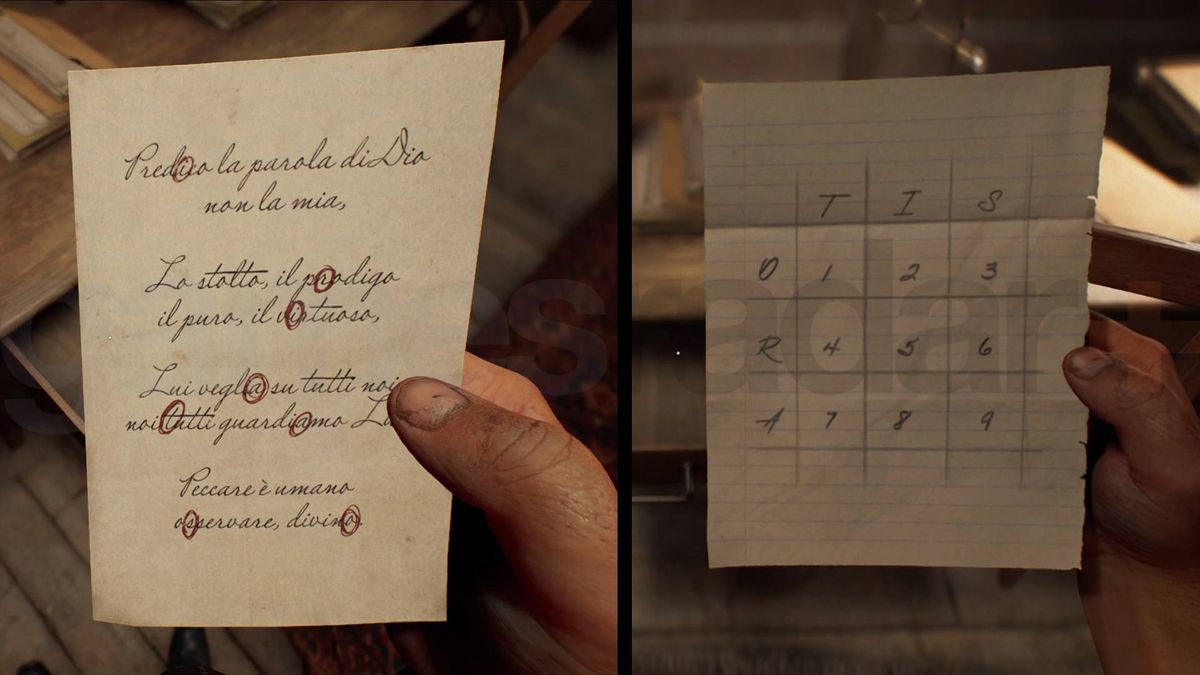 Predico la parola di Dio
non la mia,
Lo stolto, il prodigo
il puro, il virtuoso,
Lui veglia su tutti noi
noi tutti guardiamo
Peccare è umano
osservare, divino.
T I S
O 1 2 3
R 4 5 6
A 7 8 9
gamesradar+